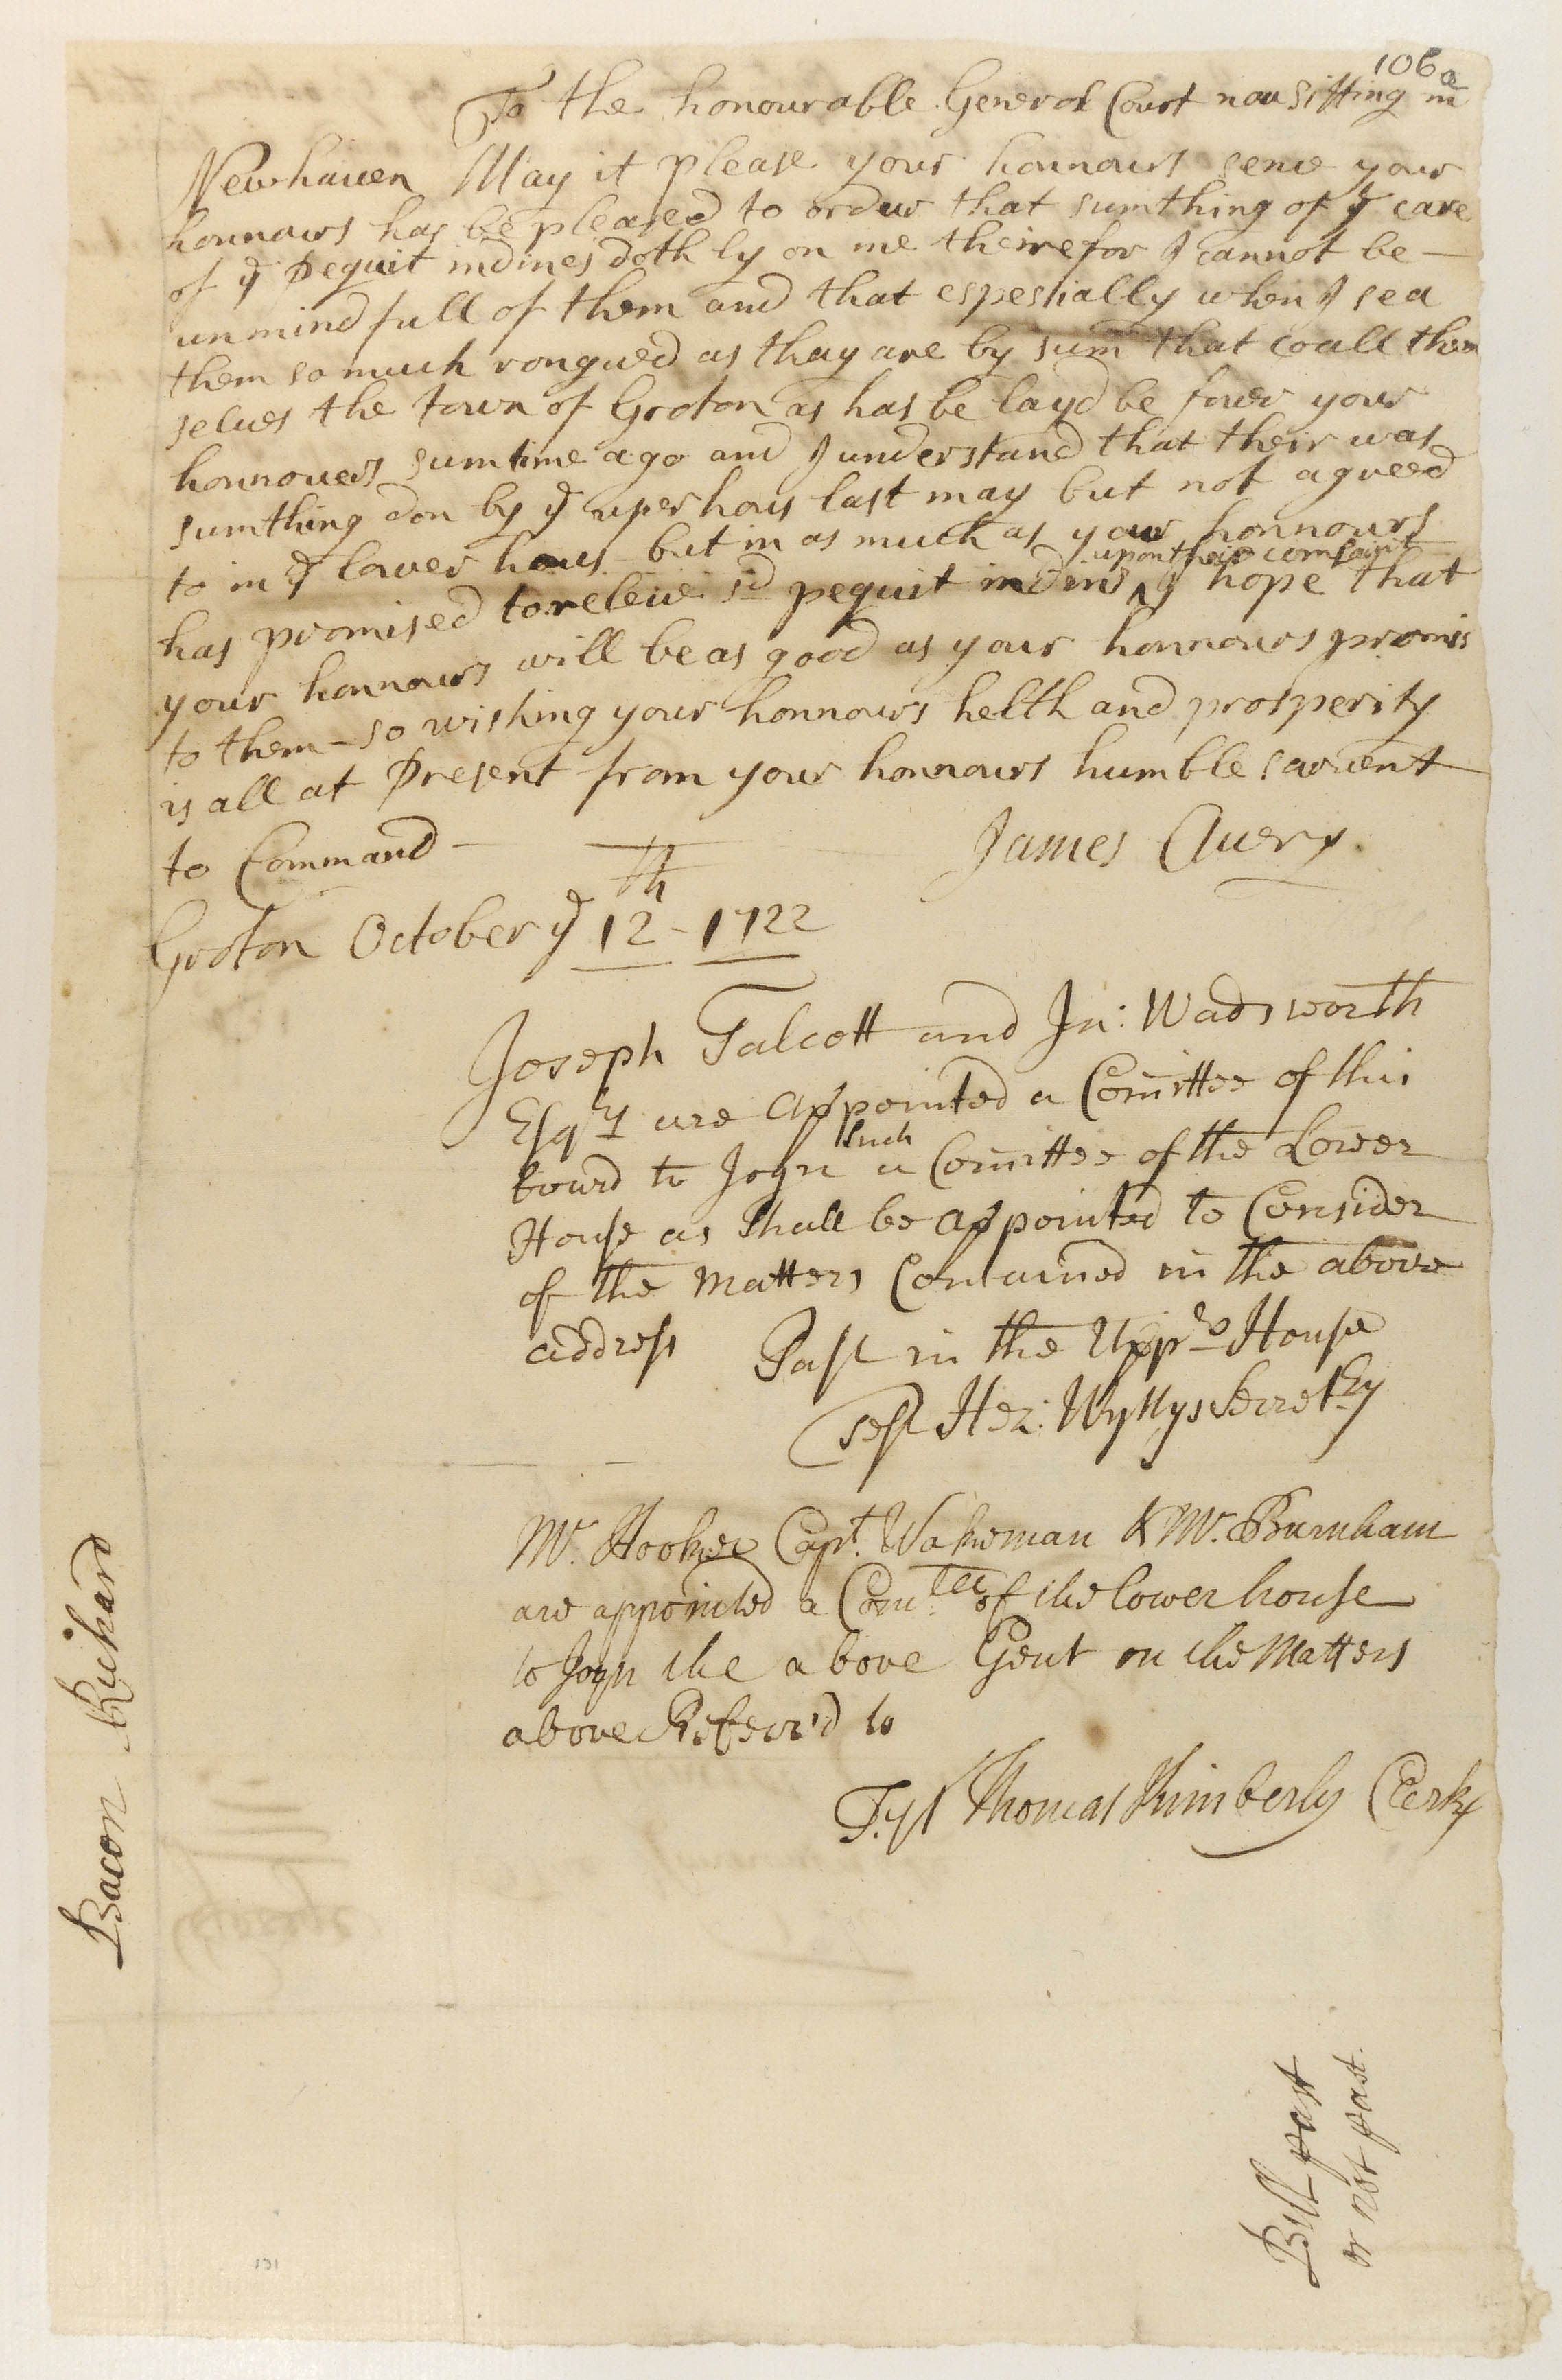 106a
To the honourable General Court now sitting in
Newhauen May it please your honnours sence your
honnours has be pleased to order that sumthing of ye care
of ye Pequit indines doth ly on me theirefor I cannot be —
unmindfull of them and that espeshially when I sea
them so much rongued as thay are by sum that coall them
selues the town of Groton as has be layd be fover your
honnouers sumtime ago and I understand that their was
sumthing don by ye uper hous last may but not agreed
to in ye lower hous but in as much as your honnours
has promised to releive sd pequit indins ^ upon their complaint I hope that
your honnours will be as good as your honnours promis
to them – so wishing your honnours helth and prosperity
is all at Present from your honnours humble saruent
to Command –
James Auery
Groton October ye 12th - 1722
Joseph Talcott and Jn: Wadsworth
Esqrs are appointed a Comittee of this
board to Joyn such a Comittee of the Lower
House as shall be appointed to Consider
of the matters Contained in the above
address Past in the Uppr House
Test Hez: Wyllys Secretry
Mr. Hooker Capt. Wakeman & Mr. Burnham
are appointed a Comtee of the lower house
to Joyn the above Gent on the Matters
above Referr'd to
Test Thomas Kimberly Clerk
Bacon Richard
Bill past
or not past.
131